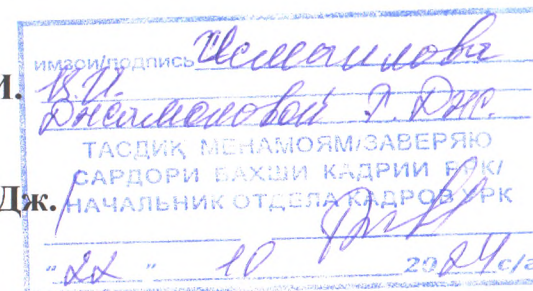 имзои/подпись Исмаилова
И. К.И.
Джамоловой Г. Дж.
ТАСДИҚ МЕНАМОЯМ/ЗАВЕРЯЮ
САРДОРИ БАХШИ КАДРИИ
Дж. НАЧАЛЬНИК ОТДЕЛА КАДРОВ УРК
"22" 10 2024 с/г